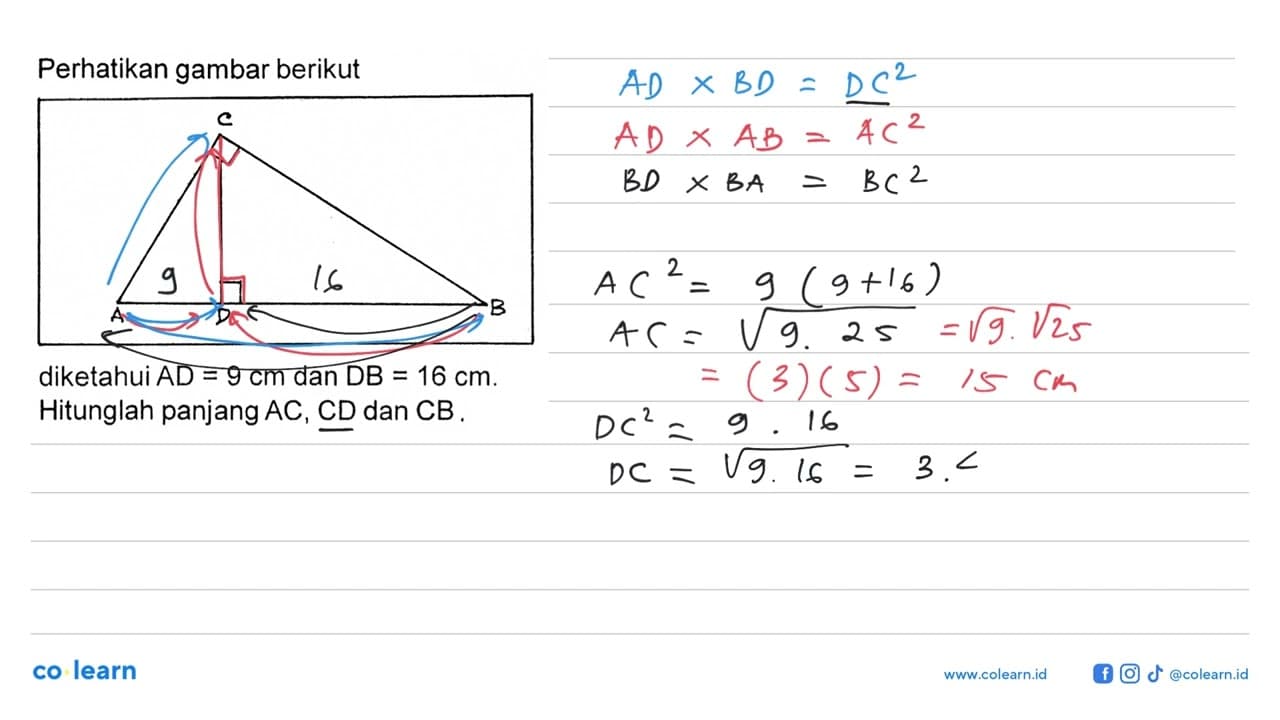 Perhatikan gambar berikut
C
9
16
A
D
B
diketahui AD = 9 cm dan DB = 16 cm.
Hitunglah panjang AC, CD dan CB.
AD × BD = DC²
AD × AB = AC²
BD × BA = BC²
AC² = 9 (9+16)
AC = √9. 25 = √9. √25
= (3)(5) = 15 cm
DC² = 9 . 16
DC = √9. 16 = 3.
co learn
www.colearn.id
@colearn.id